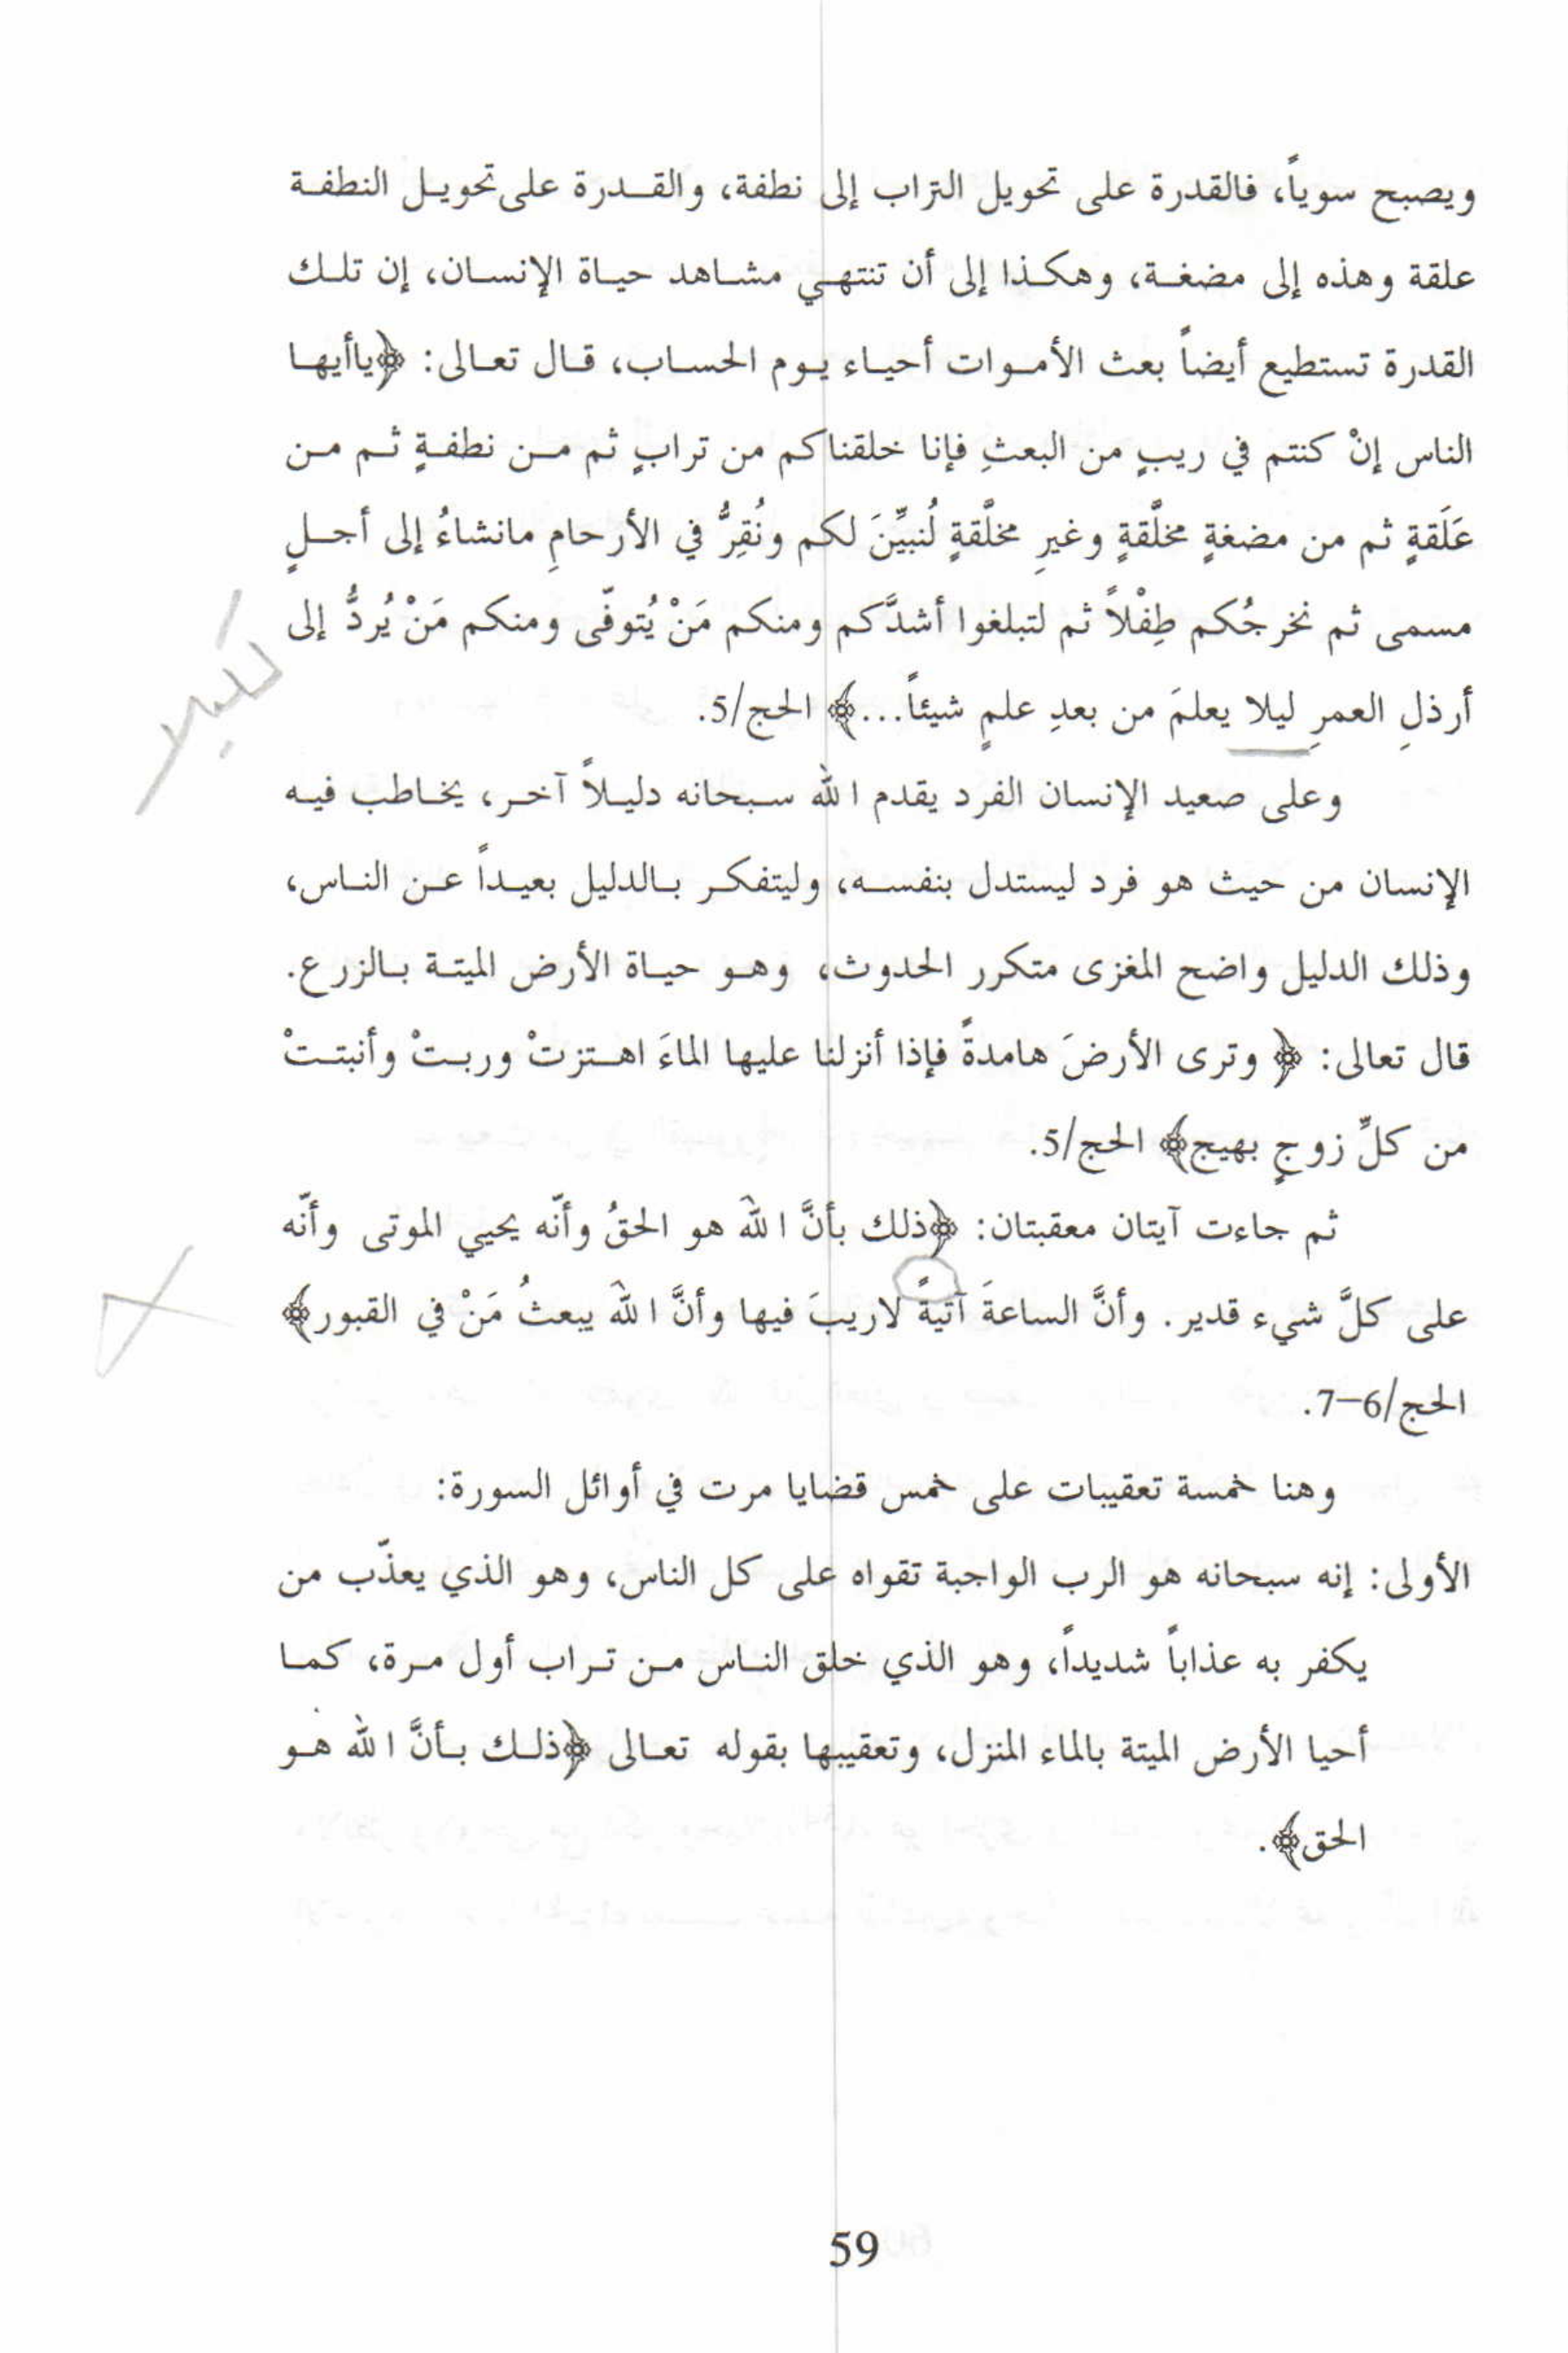 ويصبح سوياً، فالقدرة على تحويل التراب إلى نطفة، والقدرة على تحويل النطفة
علقة وهذه إلى مضغة، وهكذا إلى أن تنتهي مشاهد حياة الإنسان، إن تلك
القدرة تستطيع أيضاً بعث الأموات أحياء يوم الحساب، قال تعالى: ﴿ياأيها
الناس إنْ كنتم في ريبٍ من البعثِ فإنا خلقناكم من ترابٍ ثم من نطفةٍ ثم من
عَلَقةٍ ثم من مضغةٍ مخلَّقةٍ وغيرِ مخلَّقةٍ لُنبيِّنَ لكم ونُقِرُّ في الأرحامِ مانشاءُ إلى أجلٍ
مسمى ثم نخرجُكم طِفْلاً ثم لتبلغوا أشدَّكم ومنكم مَنْ يُتوفّى ومنكم مَنْ يُردُّ إلى
أرذلِ العمرِ ليلا يعلمَ من بعدِ علمٍ شيئاً...﴾ الحج/5.
لكيلا
وعلى صعيد الإنسان الفرد يقدم الله سبحانه دليلاً آخر، يخاطب فيه
الإنسان من حيث هو فرد ليستدل بنفسه، وليتفكر بالدليل بعيداً عن الناس،
وذلك الدليل واضح المغزى متكرر الحدوث، وهو حياة الأرض الميتة بالزرع.
قال تعالى: ﴿ وترى الأرضَ هامدةً فإذا أنزلنا عليها الماءَ اهتزتْ وربتْ وأنبتتْ
من كلِّ زوجٍ بهيج﴾ الحج/5.
ثم جاءت آيتان معقبتان: ﴿ذلك بأنَّ اللهَ هو الحقُ وأنّه يحيي الموتى وأنّه
على كلَّ شيء قدير. وأنَّ الساعةَ آتيةً لاريبَ فيها وأنَّ اللهَ يبعثُ مَنْ في القبور﴾
الحج/6–7.
وهنا خمسة تعقيبات على خمس قضايا مرت في أوائل السورة:
الأولى: إنه سبحانه هو الرب الواجبة تقواه على كل الناس، وهو الذي يعذّب من
يكفر به عذاباً شديداً، وهو الذي خلق الناس من تراب أول مرة، كما
أحيا الأرض الميتة بالماء المنزل، وتعقيبها بقوله تعالى ﴿ذلك بأنَّ الله هو
الحق﴾.
59